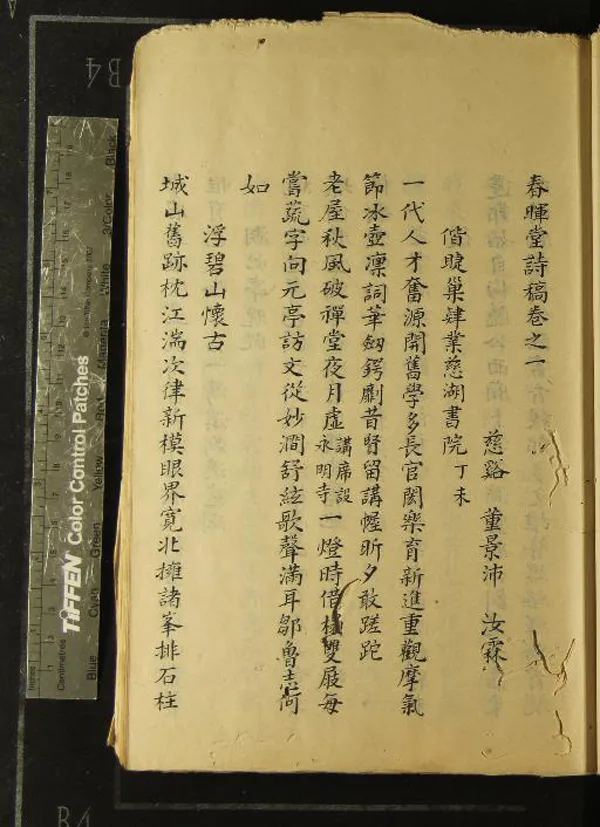 春暉堂詩稿卷之一
慈谿 董景沛 汝霖
偕睫巢肄業慈湖書院丁未
一代人才奮源開舊學多長官閎樂育新進重觀摩氣
節冰壺凜詞華劍鍔劘昔賢留講幄昕夕敢蹉跎
老屋秋風破禪堂夜月虛講席設永明寺一燈時借 雙屐每
嘗蔬字向元亭訪文從妙澗舒絃歌聲滿耳鄒魯 何
如
浮碧山懷古
城山舊跡枕江湍次律新模眼界寬北擁諸峯排石柱
TIFFEN Color Control Patches
Blue Cyan Green Yellow Red Magenta White 3/Color Black
Inches
Centimetres
B4
B4